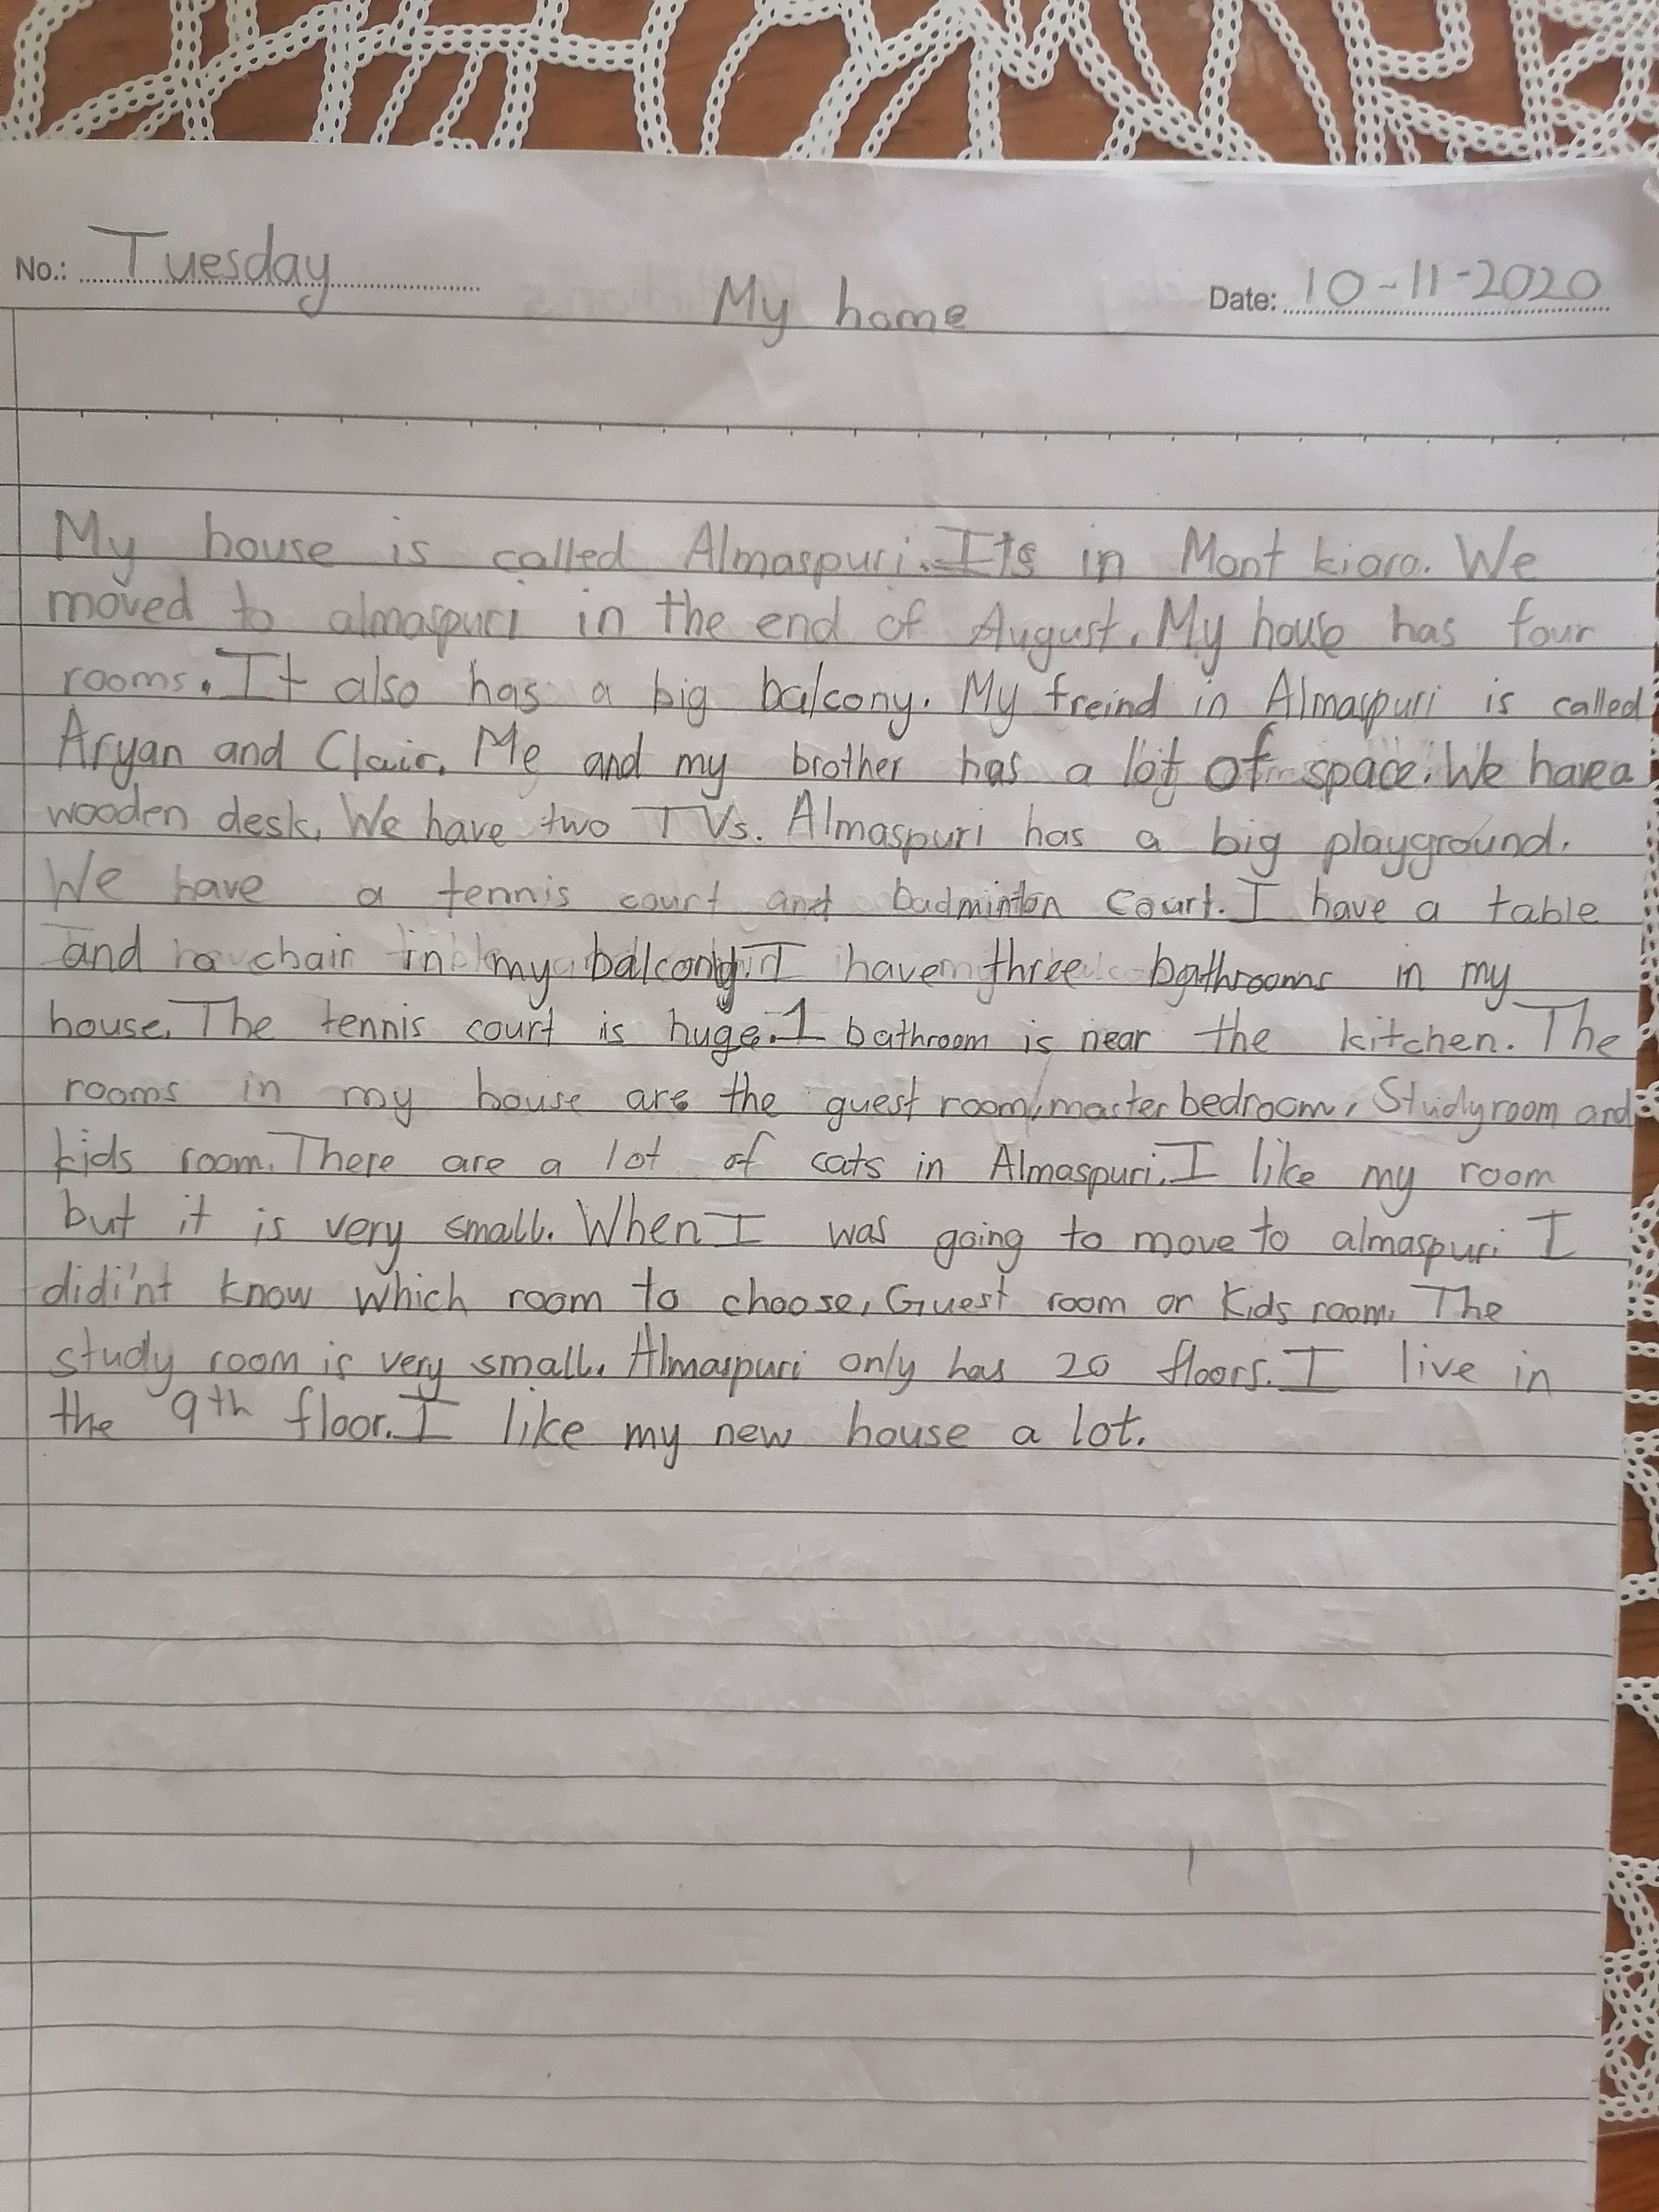 No.: Tuesday
My home
Date: 10-11-2020
My house is called Almaspuri. Its in Mont kiara. We
moved to almaspuri in the end of August. My house has four
rooms. It also has a big balcony. My freind in Almaspuri is called
Aryan and Clair. Me and my brother has a lot of space. We have a
wooden desk. We have two TVs. Almaspuri has a big playground.
We have a tennis court and badminton court. I have a table
and a chair in my balcony I have three bathrooms in my
house. The tennis court is huge. 1 bathroom is near the kitchen. The
rooms in my house are the guest room, master bedroom, Study room and
kids room. There are a lot of cats in Almaspuri. I like my room
but it is very small. When I was going to move to almaspuri I
didi'nt know which room to choose, Guest room or Kids room. The
study room is very small. Almaspuri only has 20 floors. I live in
the 9th floor. I like my new house a lot.